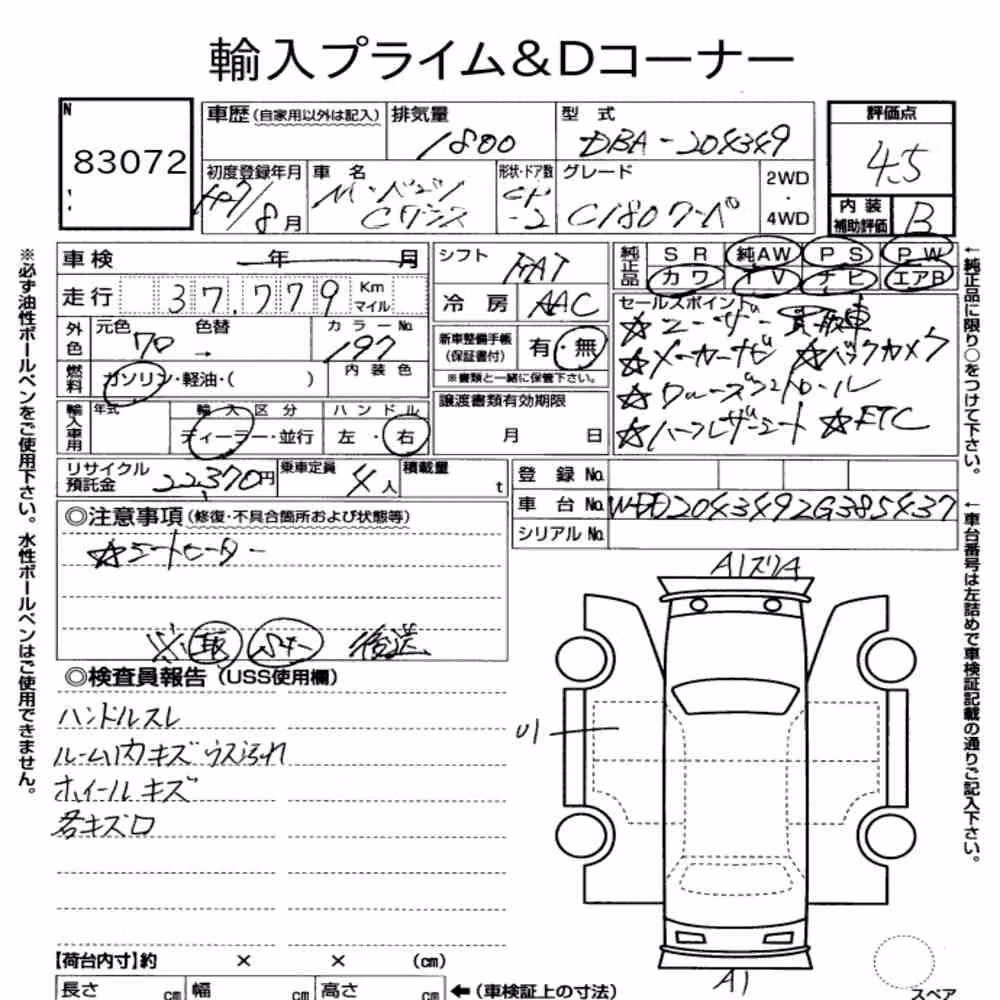 輸入プライム&Dコーナー
N
83072
車歴(自家用以外は記入) 排気量 型 式 評価点
1800 DBA-204349 4.5
初度登録年月 車 名 形状・ドア数 グレード 2WD・4WD
8月 M・ベンツ Cクラス CP-2 C180クーペ
内装補助評価 B
※必ず油性ボールペンをご使用下さい。水性ボールペンはご使用できません。
車検 年 月 シフト FAT
純正品 SR 純AW PS PW
カワ TV ナビ エアB
走行 37,779 Km マイル 冷房 AAC
外色 元色 色替 カラーNo.
クロ → 197
内装色
新車整備手帳(保証書付) 有・無
※書類と一緒に保管下さい。
セールスポイント
☆ユーザー買取車
☆メーカーナビ ☆バックカメラ
☆クルーズコントロール
☆ハーフレザーシート ☆ETC
燃料 ガソリン・軽油・( )
輸入車用 年式 輸入区分 ハンドル
ディーラー・並行 左・右
譲渡書類有効期限
月 日
←純正品に限り○をつけて下さい。
リサイクル預託金 22,370円 乗車定員 4人 積載量 t
登録No.
車台No. WDD2043492G385437
シリアルNo.
←車台番号は左詰めで車検証記載の通りご記入下さい。
◎注意事項(修復・不具合箇所および状態等)
☆シートヒーター
※ 取 後送
◎検査員報告(USS使用欄)
ハンドルスレ
ルーム内キズ ウス汚れ
ホイールキズ
各キズ口
A1スリA
U1
A1
スペア
【荷台内寸】約 × × (cm)
長さ cm 幅 cm 高さ cm ←(車検証上の寸法)